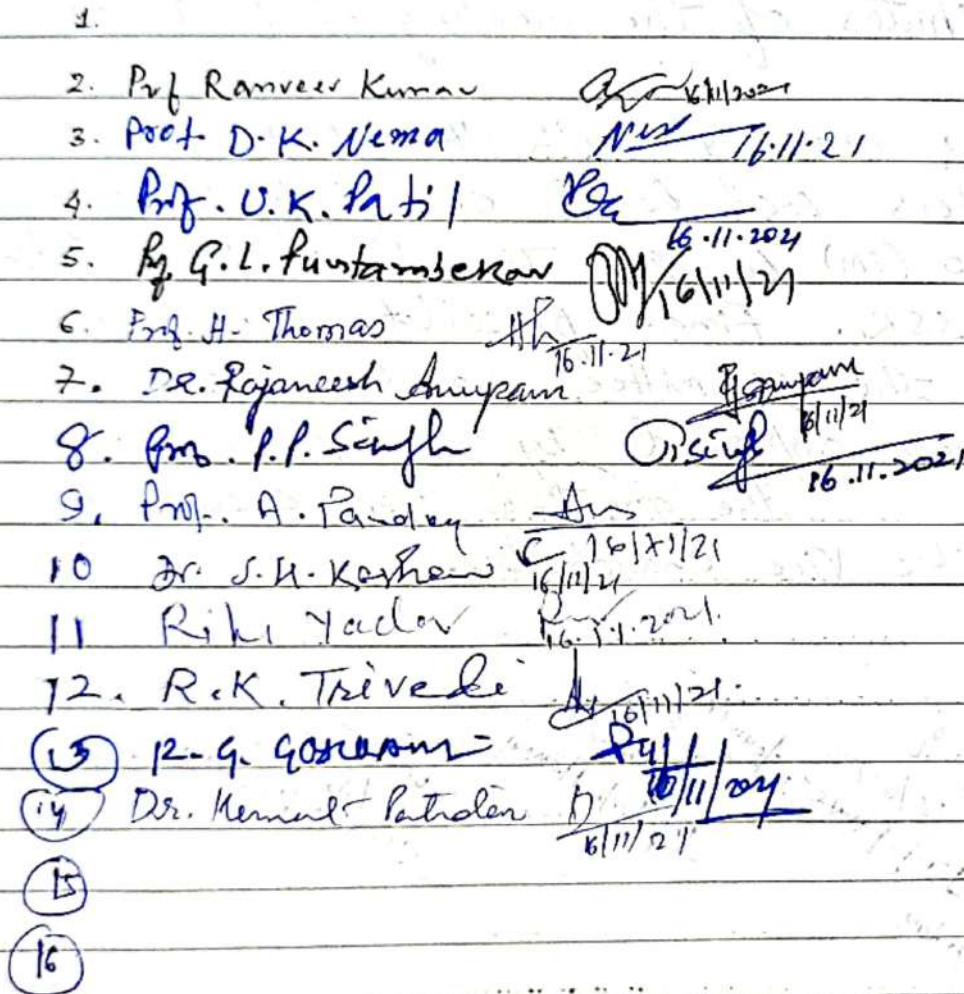 1.
2. Prof Ranveer Kumar 16/11/2021
3. Prof D. K. Nema 16.11.21
4. Prof. U. K. Patil 16.11.2021
5. G. L. Puntambekar 16/11/21
6. Prof. H. Thomas 16.11.21
7. Dr. Rajaneesh Anupam 16/11/21
8. P. P. Singh 16.11.2021
9. Prof. A. Pandey 16/XI/21
10 Dr. 16/11/21
11 Yadav 16.11.2021
12. R. K. Trivedi 16/11/21
13 16/11/2021
14 Dr. 16/11/21
15
16